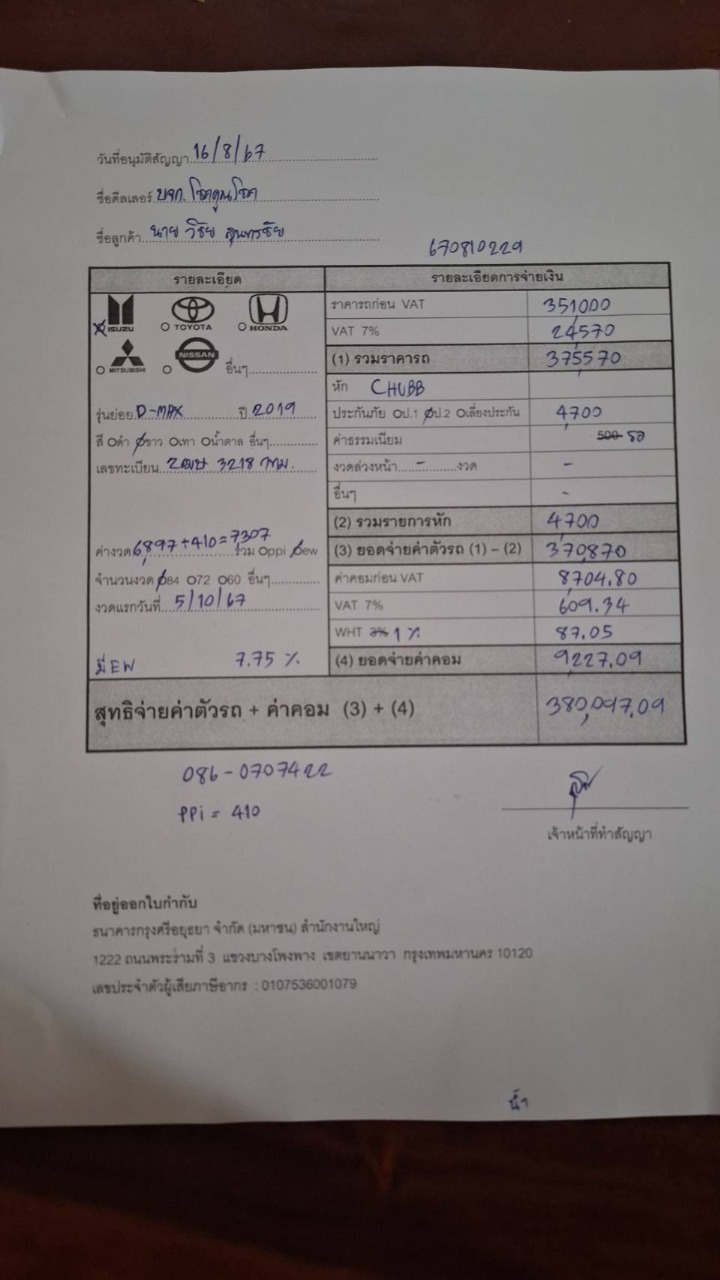 วันที่อนุมัติสัญญา 16/8/67
ชื่อดีลเลอร์ บจก. โชคคูนโชค
ชื่อลูกค้า นาย วิชัย สุนทรชัย
670810229
รายละเอียด
ISUZU TOYOTA HONDA
MITSUBISHI NISSAN อื่นๆ
รุ่นย่อย D-MAX ปี 2019
สี ดำ ขาว เทา น้ำตาล อื่นๆ
เลขทะเบียน 3218 กทม.
ค่างวด 6,897+410=7307 รวม ppi ew
จำนวนงวด 84 72 60 อื่นๆ
งวดแรกวันที่ 5/10/67
มี EW 7.75 %
รายละเอียดการจ่ายเงิน
ราคารถก่อน VAT 351000
VAT 7% 24570
(1) รวมราคารถ 375570
หัก CHUBB
ประกันภัย ป.1 ป.2 เลี่ยงประกัน 4700
ค่าธรรมเนียม 500 รอ
งวดล่วงหน้า - งวด -
อื่นๆ -
(2) รวมรายการหัก 4700
(3) ยอดจ่ายค่าตัวรถ (1) – (2) 370870
ค่าคอมก่อน VAT 8,704.80
VAT 7% 609.34
WHT 3% 1 % 87.05
(4) ยอดจ่ายค่าคอม 9,227.09
สุทธิจ่ายค่าตัวรถ + ค่าคอม (3) + (4) 380,097.09
086-0707422
PPi = 410
เจ้าหน้าที่ทำสัญญา
ที่อยู่ออกใบกำกับ
ธนาคารกรุงศรีอยุธยา จำกัด (มหาชน) สำนักงานใหญ่
1222 ถนนพระรามที่ 3 แขวงบางโพงพาง เขตยานนาวา กรุงเทพมหานคร 10120
เลขประจำตัวผู้เสียภาษีอากร : 0107536001079
น้ำ